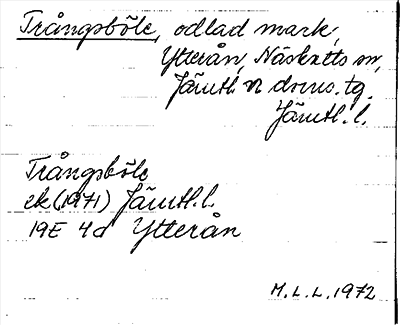 Trångsböle, odlad mark,
Ytterån, Näskotts sn,
Jämtl. n doms.tg.
Jämtl. l.
Trångsböle
ek (1971) Jämtl. l.
19E 4d Ytterån
M.L.L. 1972